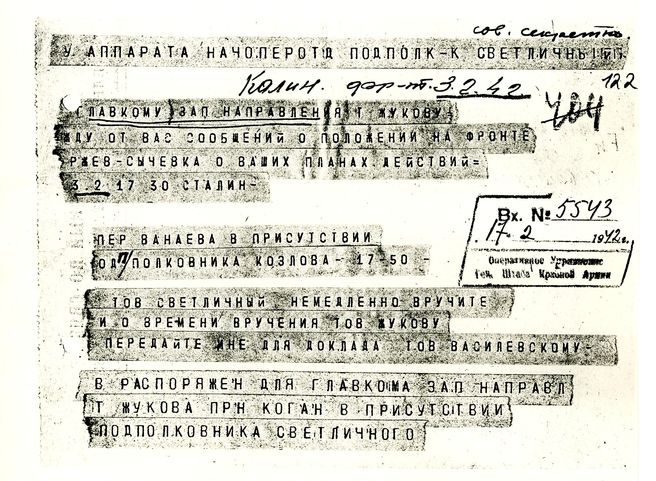 сов. секретно.
У АППАРАТА НАЧОПЕРОТД ПОДПОЛК-К СВЕТЛИЧНЫЙ
Калин. фр-т. 3.2.42
122
ГЛАВКОМУ ЗАП НАПРАВЛЕНИЯ Т ЖУКОВУ
ЖДУ ОТ ВАС СООБЩЕНИЙ О ПОЛОЖЕНИИ НА ФРОНТЕ
РЖЕВ-СЫЧЕВКА О ВАШИХ ПЛАНАХ ДЕЙСТВИЙ=
3.2 17 30 СТАЛИН-
Вх. № 5543
17 2 1942г.
Оперативное Управление
Ген. Штаба Красной Армии
ПЕР ВАНАЕВА В ПРИСУТСТВИИ
ПОДПОЛКОВНИКА КОЗЛОВА - 17-50 -
ТОВ СВЕТЛИЧНЫЙ НЕМЕДЛЕННО ВРУЧИТЕ
И О ВРЕМЕНИ ВРУЧЕНИЯ ТОВ ЖУКОВУ
ПЕРЕДАЙТЕ МНЕ ДЛЯ ДОКЛАДА ТОВ ВАСИЛЕВСКОМУ-
В РАСПОРЯЖЕН ДЛЯ ГЛАВКОМА ЗАП НАПРАВЛ
Т ЖУКОВА ПРН КОГАН В ПРИСУТСТВИИ
ПОДПОЛКОВНИКА СВЕТЛИЧНОГО